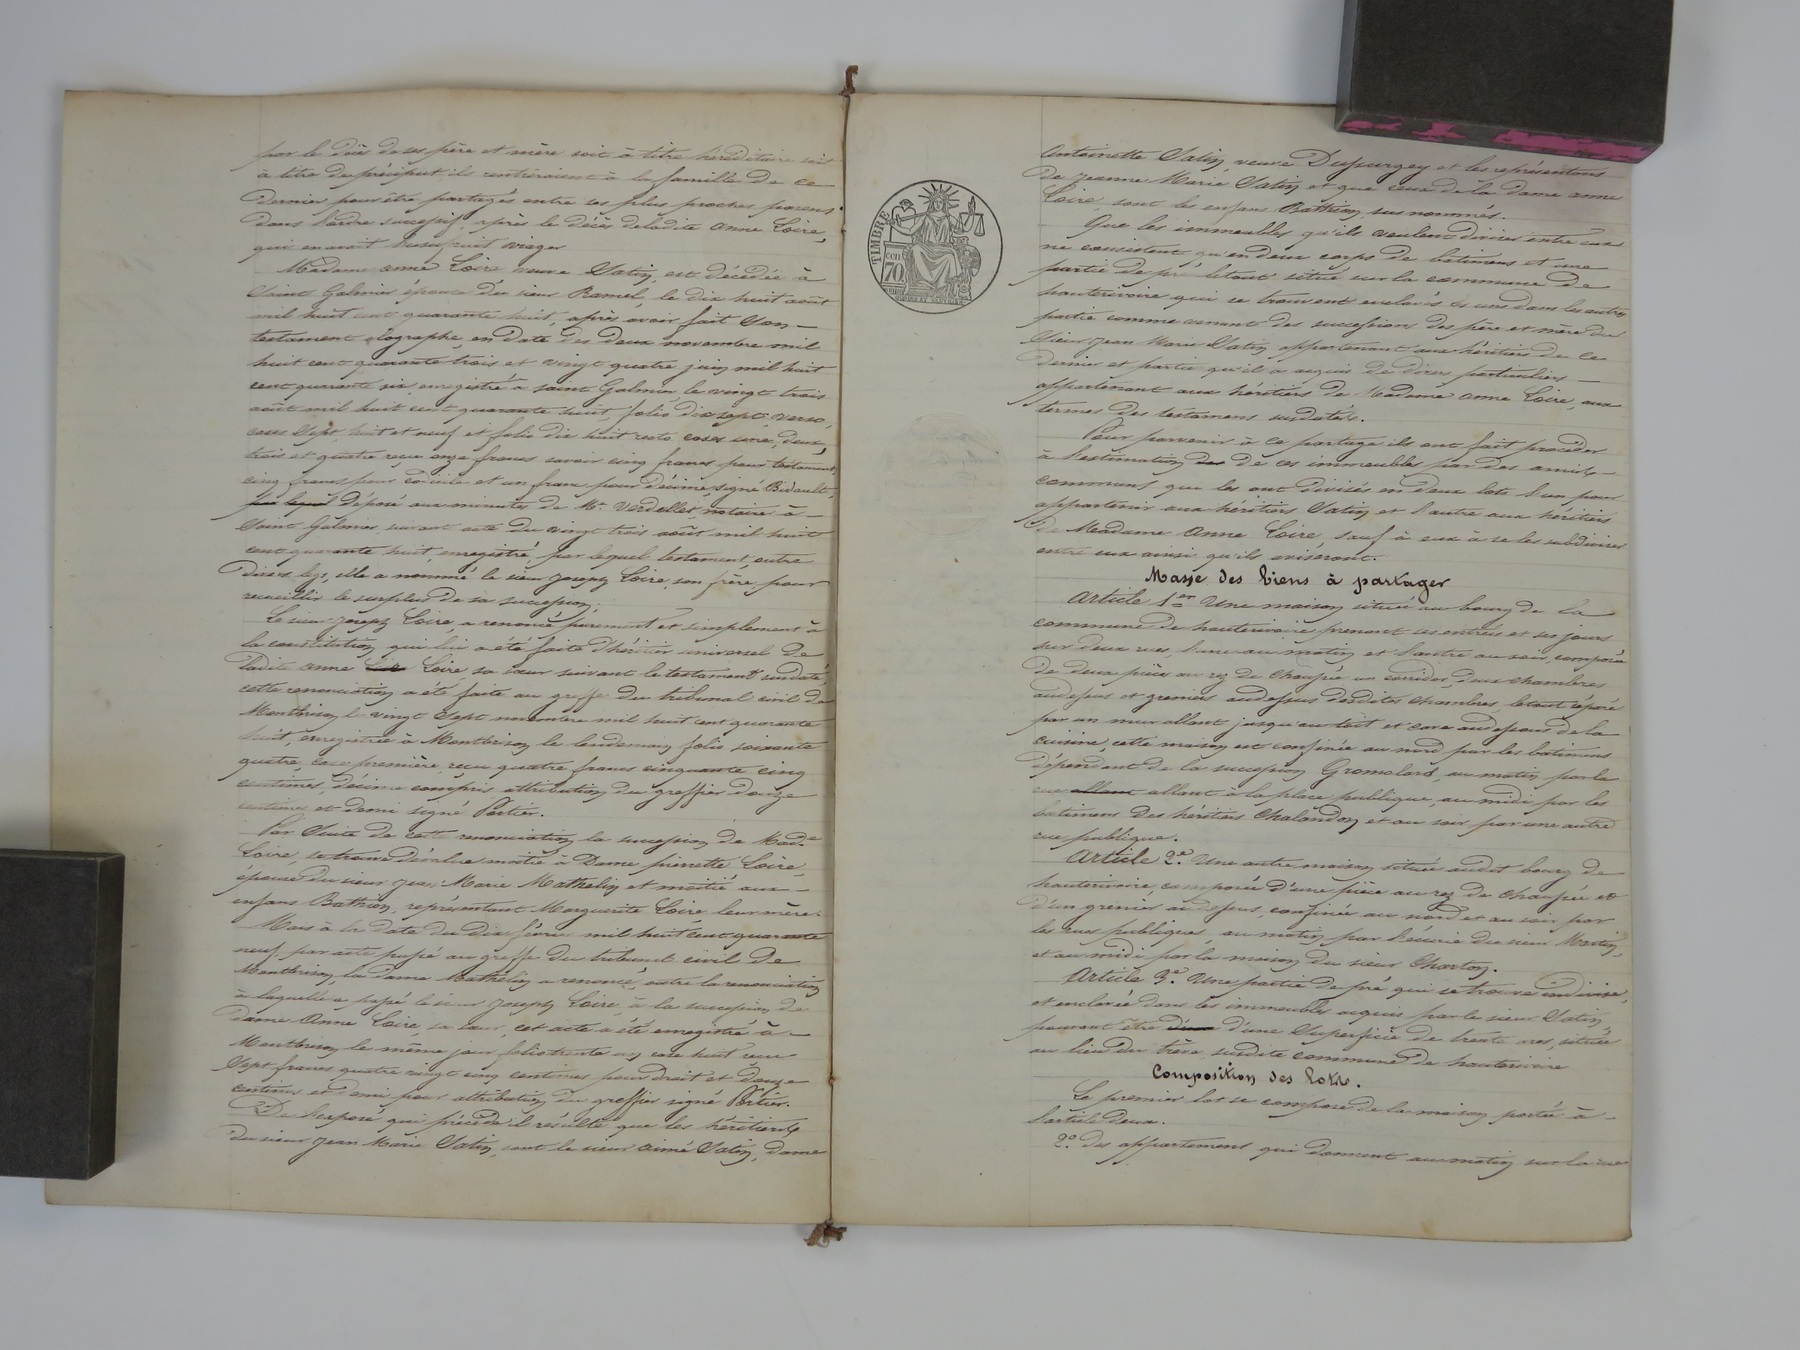 par le décès de ses père et mère soit à titre héréditaire soit
à titre de préciput, ils rentreroient à la famille de ce
dernier pour être partagés entre ses plus proches parens
dans l'ordre successif, après le décès de ladite anne Loire,
qui en avait l'usufruit viager
Madame anne Loire veuve Satin, est décédée à
Saint Galmier épouse du sieur Ramel, le dix huit août
mil huit cent quarante huit, après avoir fait son
testament olographe, en date des deux novembre mil
huit cent quarante trois et vingt quatre juin mil huit
cent quarante six, enregistré à saint Galmier, le vingt trois
août mil huit cent quarante huit, folio dix sept, verso,
cases sept, huit et neuf et folio dix huit recto, cases une, deux,
trois et quatre reçu onze francs savoir cinq francs pour testament,
cinq francs pour et un franc pour décime, signé Bidault,
par lequel déposé aux minutes de Me Verdellet notaire à
Saint Galmier suivant acte du vingt trois août mil huit
cent quarante huit enregistré, par lequel testament, outre
divers legs, elle a nommé le sieur joseph Loire, son frère, pour
recueillir le surplus de sa succession.
Le sieur joseph Loire, a renoncé purement et simplement à
la constitution qui lui a été faite d'héritier universel de
ladite anne Loire Loire sa sœur suivant le testament susdaté,
cette renonciation a été faite au greffe du tribunal civil de
Montbrison le vingt sept novembre mil huit cent quarante
huit, enregistrée à Montbrison le lendemain folio soixante
quatre, case première, reçu quatre francs cinquante cinq
centimes, décime compris attribution du greffier douze
centimes et demi signé Portier.
Par suite de cette renonciation la succession de Made
Loire, se trouve dévolue moitié à Dame pierrette Loire,
épouse du sieur jean Marie Mathelin et moitié aux
enfans Bathion, représentant Marguerite Loire leur mère.
Mais à la date du dix février mil huit cent quarante
neuf, par acte passé au greffe du tribunal civil de
Montbrison, la dame Mathelin a renoncé, outre la renonciation
à laquelle a passé le sieur joseph Loire, à la succession de
dame Anne Loire sa sœur, cet acte a été enregistré à
Montbrison le même jour folio trente un case huit reçu
sept francs quatre vingt cinq centimes pour droit et douze
centimes et demi pour attribution du greffier signé Portier.
De l'exposé qui précède il résulte que les héritiers
du sieur jean Marie Satin, sont le sieur aimé Satin, dame
TIMBRE
70
antoinette Satin veuve Duspurgey et les représentans
de jeanne Marie Satin et que ceux de la dame anne
Loire, sont les enfans Bathion sus nommés.
Que les immeubles qu'ils veulent diviser entre eux
ne consistent qu'en deux corps de batimens et une
partie de pré le tout situé sur la commune de
hauterivoire qui se trouvent enclavés les uns dans les autres
partie comme venant des successions des père et mère du
sieur jean Marie Satin appartenant aux héritiers de ce
dernier et partie qu'il a acquis de divers particuliers
appartenant aux héritiers de Madame anne Loire, aux
termes des testamens susdatés.
Pour parvenir à ce partage ils ont fait procéder
à l'estimation des de ces immeubles par des amis
communs qui les ont divisés en deux lots l'un pour
appartenir aux héritiers Satin et l'autre aux héritiers
de Madame Anne Loire, sauf à eux à se les subdiviser
entre eux ainsi qu'ils aviseront.
Masse des biens à partager
Article 1er Une maison située au bourg de la
commune de hauterivoire prenant ses entrées et ses jours
sur deux rues, l'une au matin et l'autre au soir, composée
de deux pièces au rez de chaussée un corridor, deux chambres
audessus et greniers audessus desdites chambres, le tout séparé
par un mur allant jusqu'au toit et cave audessous de la
cuisine, cette maison est confinée au nord par les batimens
dépendant de la succession Gromolard, au matin par la
rue allant allant à la place publique, au midi par les
batimens des héritiers Chalandon et au soir par une autre
rue publique.
Article 2e Une autre maison située audit bourg de
hauterivoire, composée d'une pièce au rez de chaussée et
d'un grenier audessus, confinée au nord et au soir par
les rues publiques, au matin par l'écurie du sieur Martin,
et au midi par la maison du sieur Charton.
Article 3e Une partie de pré qui se trouve indivise,
et enclavée dans les immeubles acquis par le sieur Satin,
pouvant être d'une d'une superficie de trente ares, située
au lieu du trève, susdite commune de hauterivoire
Composition des lots.
Le premier lot se compose de la maison portée à
l'article deux.
2° des appartemens qui donnent au matin sur la rue